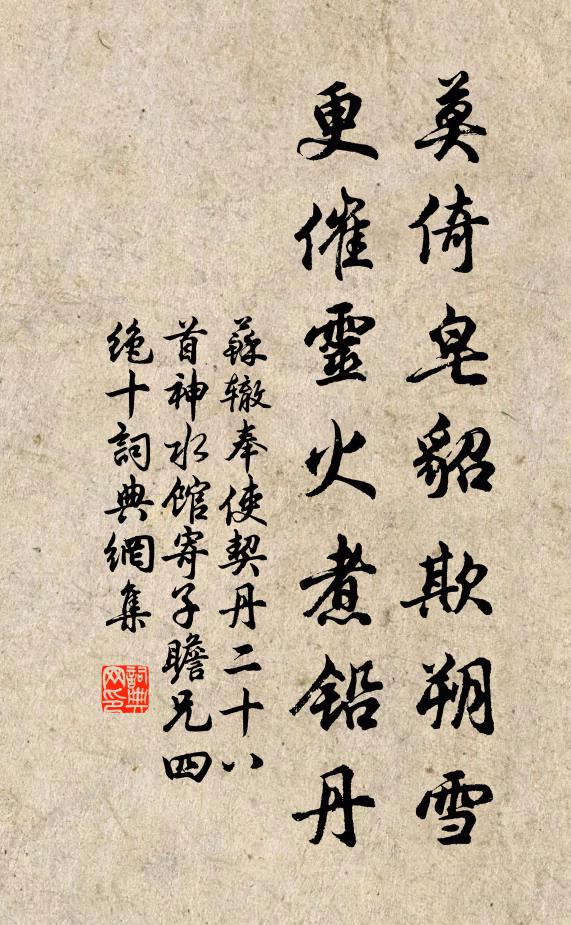 莫倚皂貂欺朔雪
更催靈火煮铅丹
蘇辙奉使契丹二十八
首神水馆寄子瞻兄四
绝十詞典網集
詞典网印